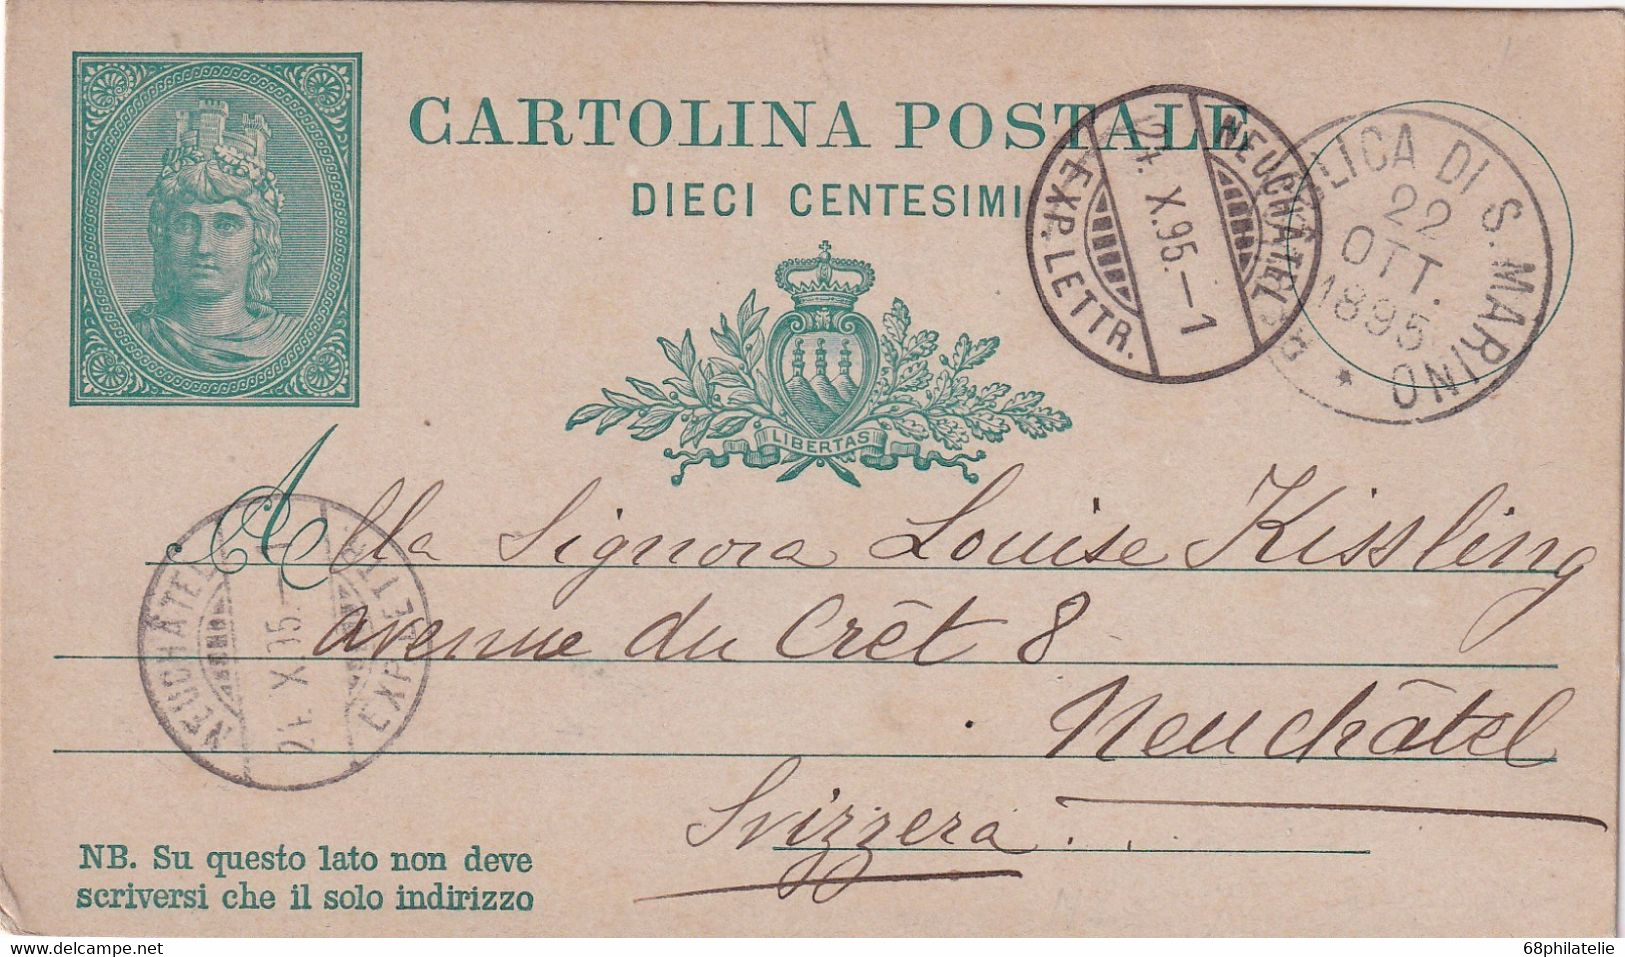 CARTOLINA POSTALE
DIECI CENTESIMI
LIBERTAS
NEUCHÂTEL
24. X.95.–1
EXP. LETTR.
BLICA DI S. MARINO
22
OTT.
1895
Alla Signora Louise Kissling
avenue du Crêt 8
Neuchâtel
Svizzera
NEUCHÂTEL
24. X.95.–1
EXP. LETTR.
NB. Su questo lato non deve
scriversi che il solo indirizzo
delcampe.net
68philatelie